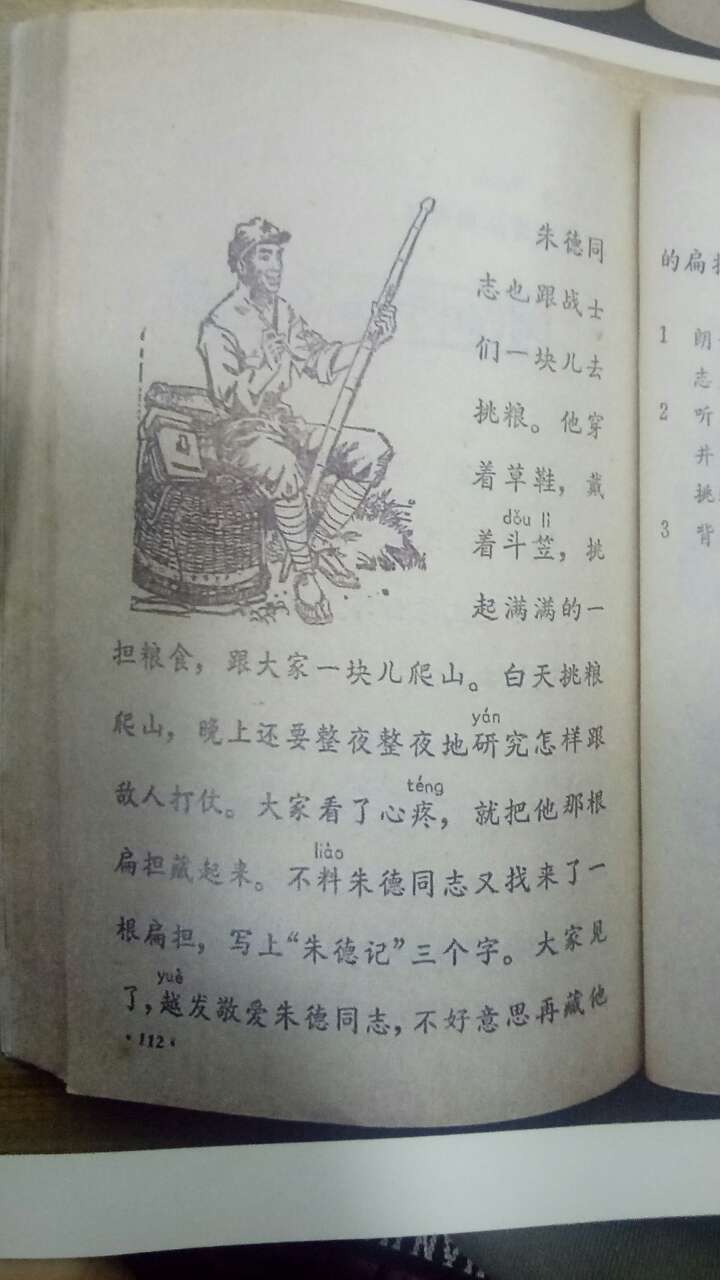 朱德同
志也跟战士
们一块儿去
挑粮。他穿
着草鞋，戴
dǒu lì
着斗笠，挑
起满满的一
担粮食，跟大家一块儿爬山。白天挑粮
yán
爬山，晚上还要整夜整夜地研究怎样跟
téng
敌人打仗。大家看了心疼，就把他那根
liào
扁担藏起来。不料朱德同志又找来了一
根扁担，写上“朱德记”三个字。大家见
yuè
了，越发敬爱朱德同志，不好意思再藏他
·112·
的扁担
1 朗
志
2 听
井
挑
3 背